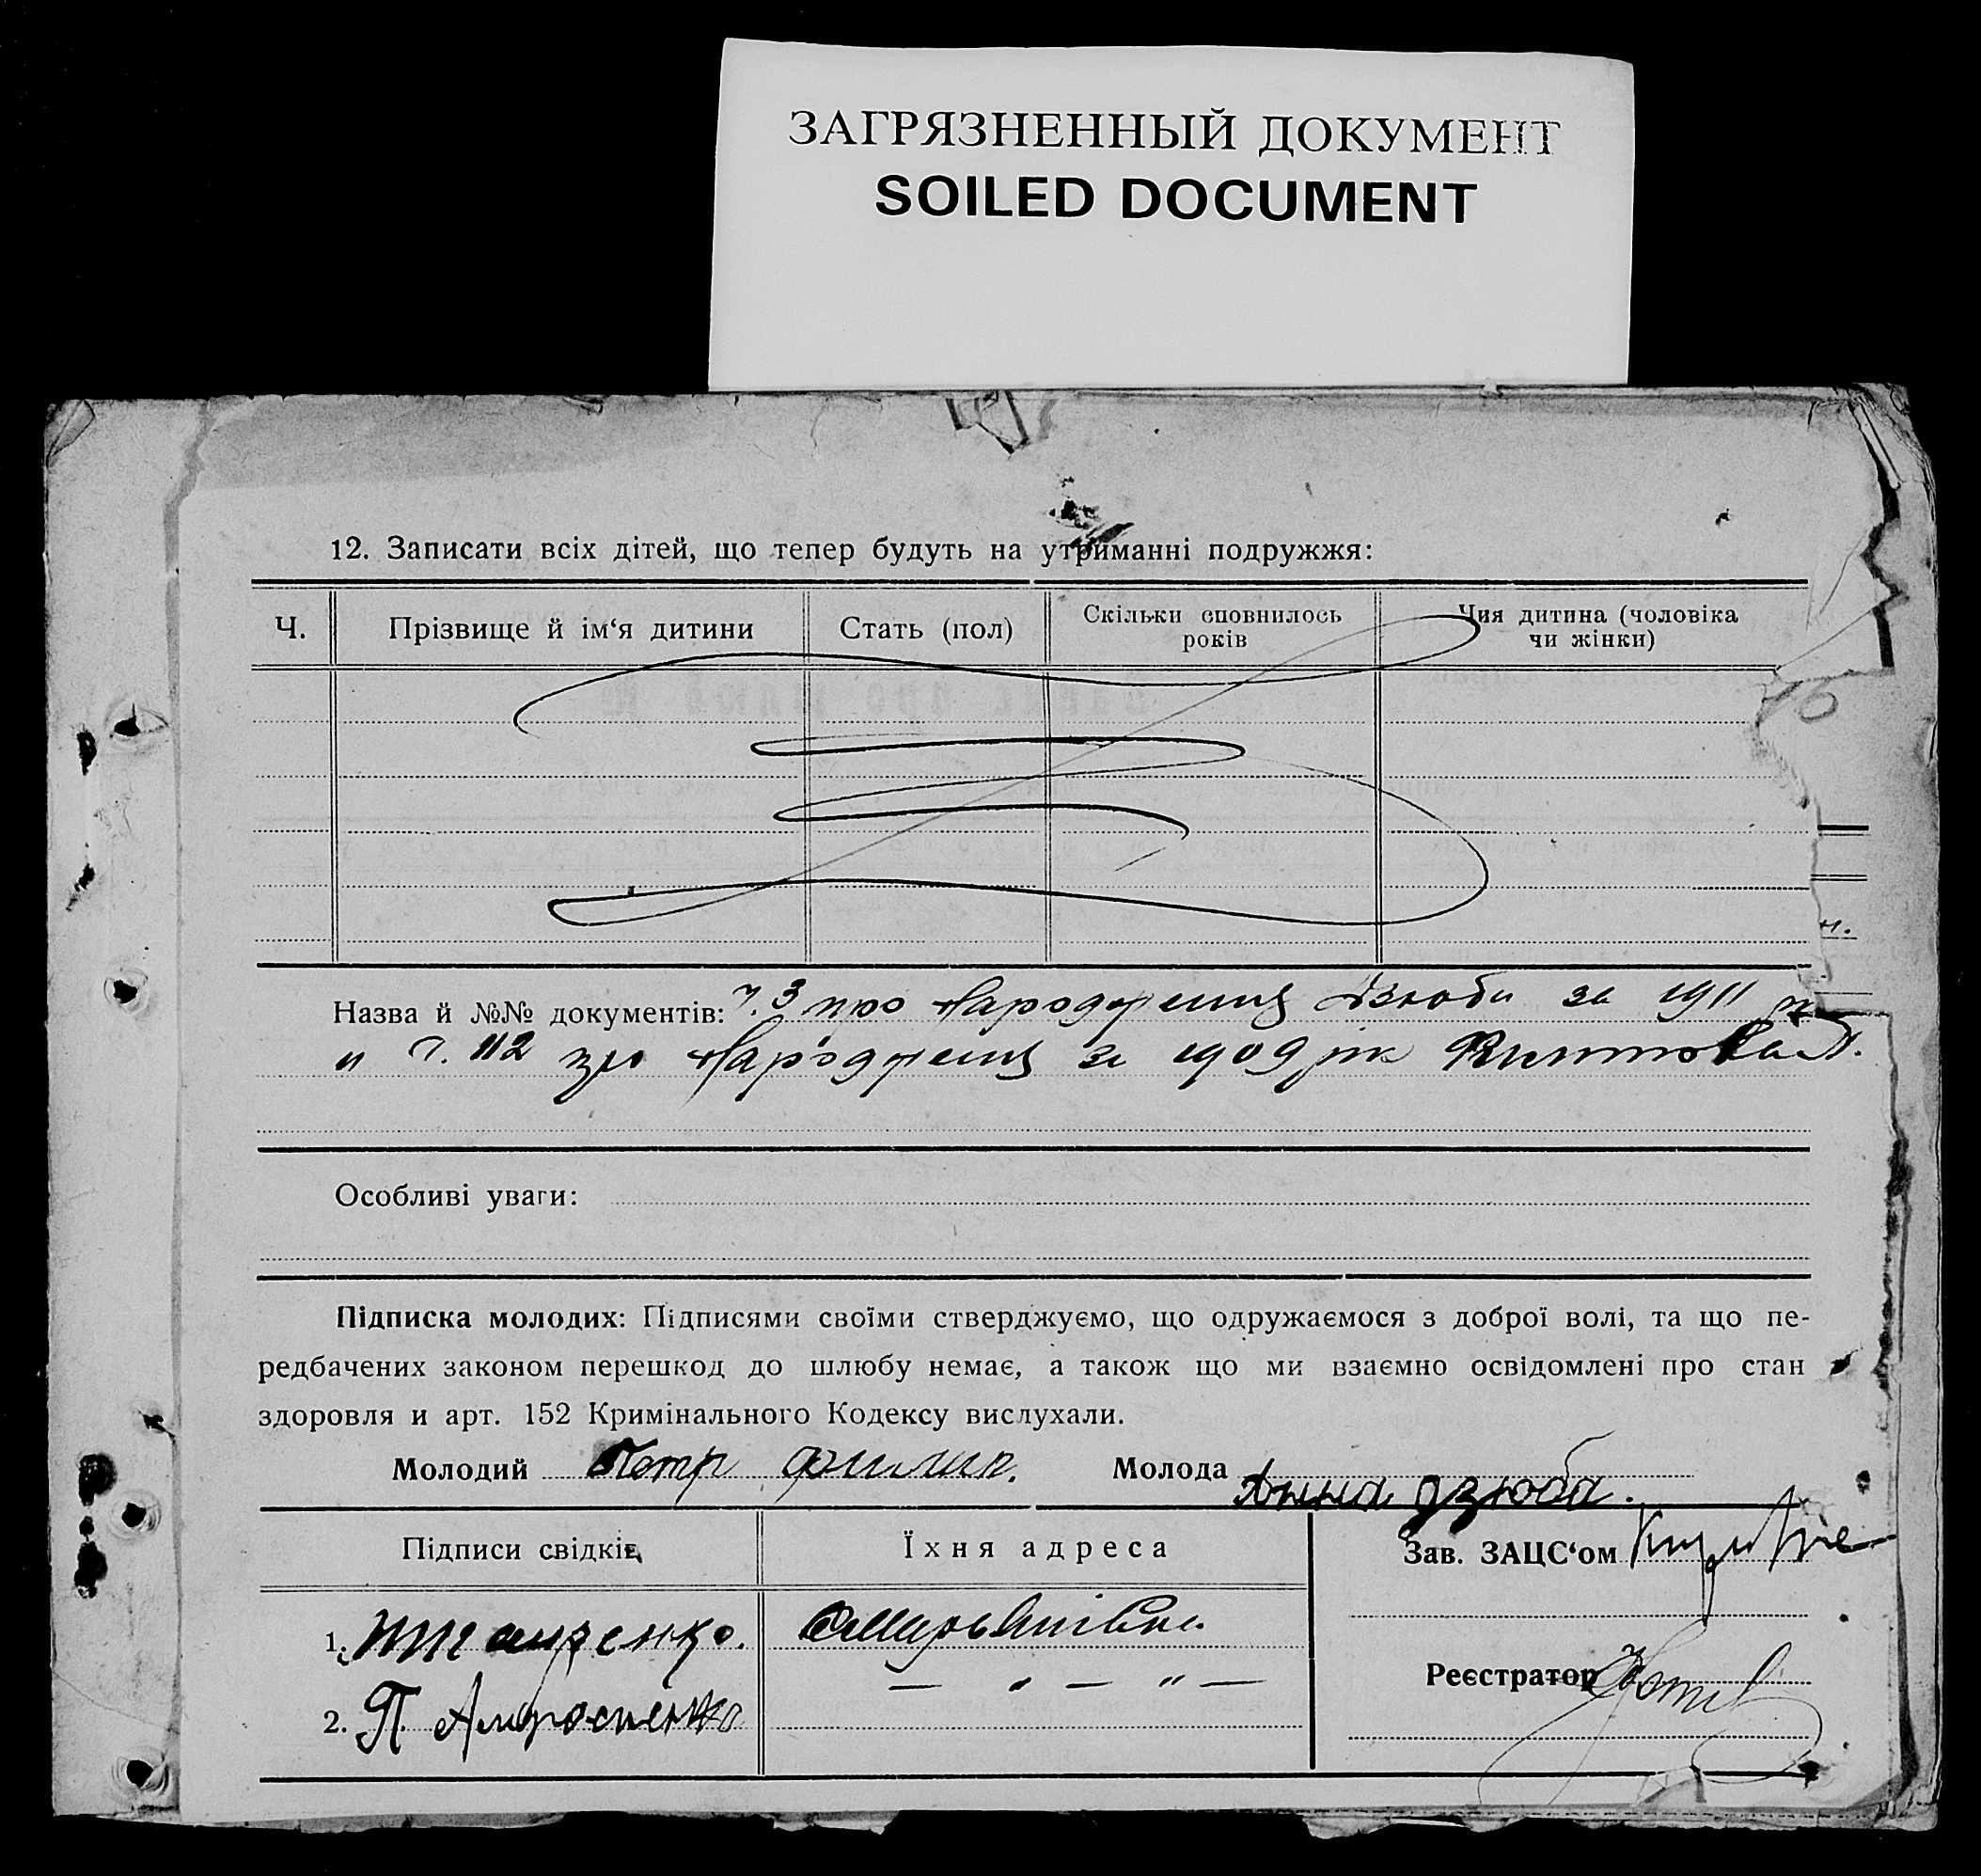 ЗАГРЯЗНЕННЫЙ ДОКУМЕНТ
SOILED DOCUMENT
12. Записати всіх дітей, що тепер будуть на утриманні подружжя:
Ч.
Прізвище й ім‘я дитини
Стать (пол)
Скільки сповнилось
років
Чия дитина (чоловіка
чи жінки)
Назва й №№ документів: ч. 3 про народження Дзюби за 1911 р
и ч. 112 про народження за 1909 рік
Особливі уваги:
Підписка молодих: Підписями своїми стверджуємо, що одружаємося з доброї волі, та що пе-
редбачених законом перешкод до шлюбу немає, а також що ми взаємно освідомлені про стан
здоровля и арт. 152 Кримінального Кодексу вислухали.
Молодий Петр Филип. Молода Анна Дзюба.
Підписи свідків
Їхня адреса
Зав. ЗАЦС‘ом
1.
2. П. Амбросиенко
— " — " —
Реєстратор